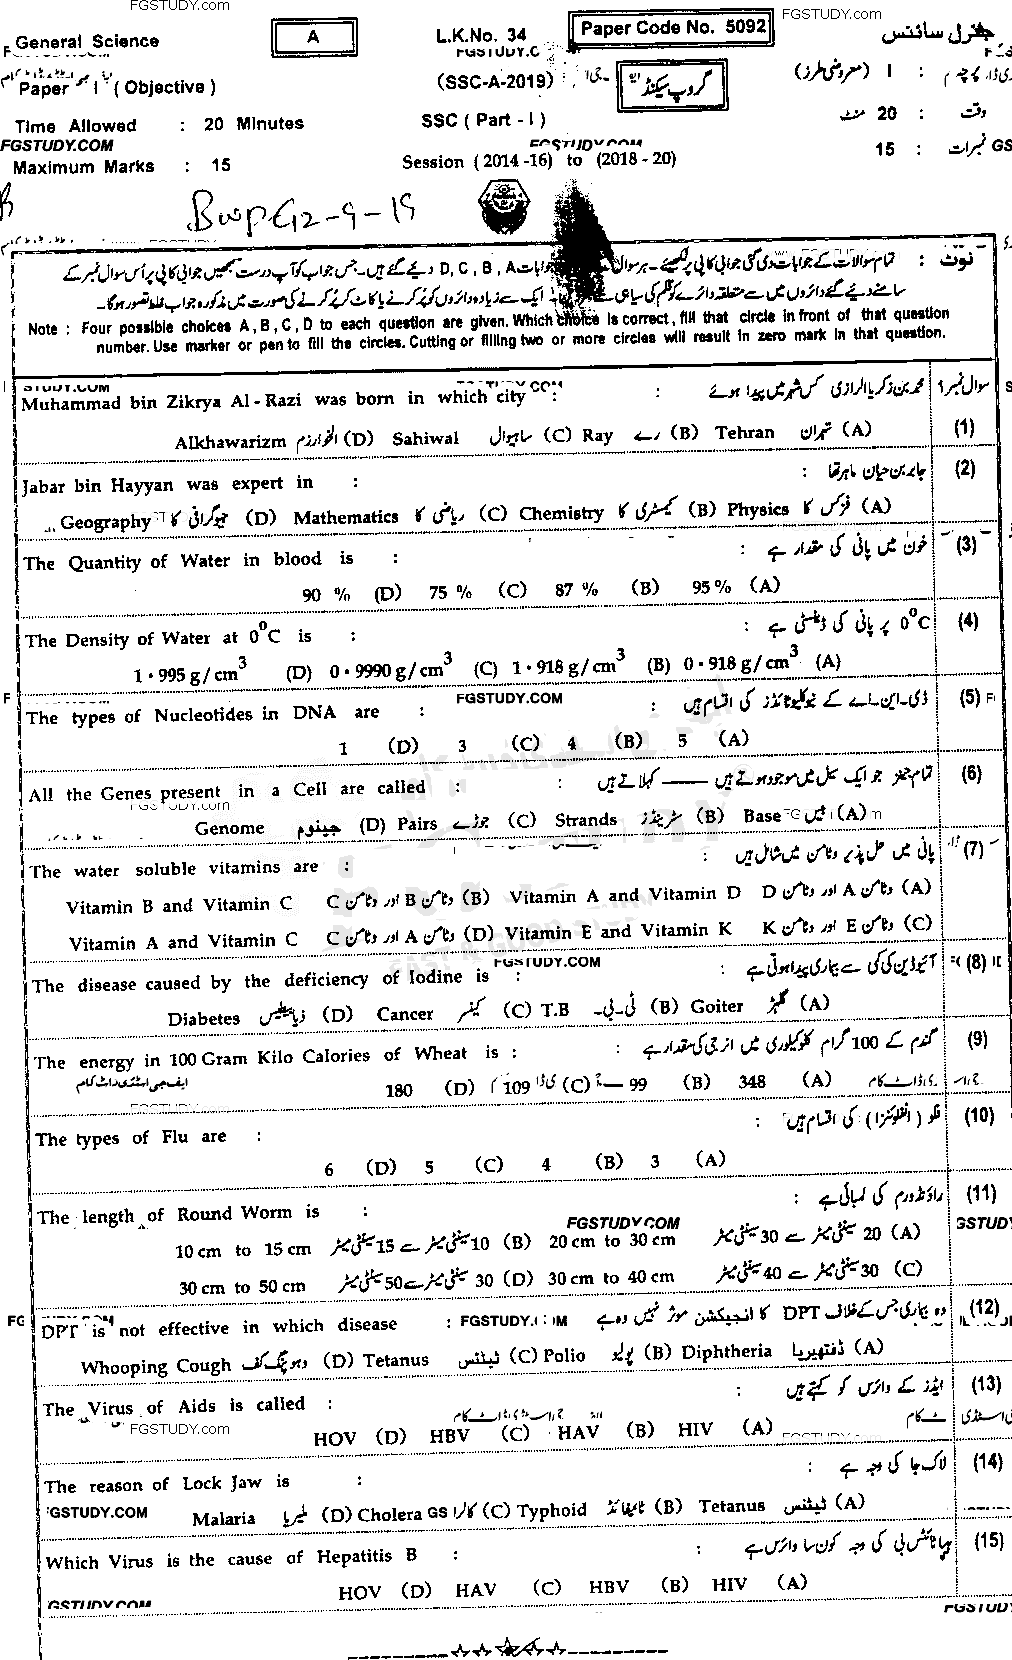 FGSTUDY.COM
FGSTUDY.COM
General Science
A
L.K.No. 34
Paper Code No. 5092
جنرل سائنس
Paper I ( Objective )
(SSC-A-2019)
گروپ سیکنڈ
I (معروضی طرز) :
Time Allowed : 20 Minutes
SSC ( Part - I )
وقت : 20 منٹ
FGSTUDY.COM
FGSTUDY.COM
Maximum Marks : 15
Session ( 2014 -16) to (2018 - 20)
نمبرات : 15
BWP-G2-9-19
نوٹ : تمام سوالات کے جوابات دی گئی جوابی کاپی پر لکھیئے ۔ ہر سوال کے جوابات A , B , C , D دیئے گئے ہیں۔ جس جواب کو آپ درست سمجھیں جوابی کاپی پر اُس سوال نمبر کے
سامنے دیئے گئے دائروں میں سے متعلقہ دائرے کو قلم کی سیاہی سے ایک سے زیادہ دائروں کو پُر کرنے یا کاٹ کر پُر کرنے کی صورت میں مذکورہ جواب غلط تصور ہوگا۔
Note : Four possible choices A , B , C , D to each question are given. Which choice is correct, fill that circle in front of that question
number. Use marker or pen to fill the circles. Cutting or filling two or more circles will result in zero mark in that question.
سوال نمبر ۱ محمد بن زکریا الرازی کس شہر میں پیدا ہوئے :
Muhammad bin Zikrya Al - Razi was born in which city :
(1) (A) Tehran تہران (B) Ray رے (C) Sahiwal ساہیوال (D) Alkhawarizm الخوارزم
(2) جابر بن حیان ماہر تھا :
Jabar bin Hayyan was expert in :
(A) Physics فزکس کا (B) Chemistry کیمسٹری کا (C) Mathematics ریاضی کا (D) Geography جیوگرافی کا
(3) خون میں پانی کی مقدار ہے :
The Quantity of Water in blood is :
(A) 95 % (B) 87 % (C) 75 % (D) 90 %
(4) 0°C پر پانی کی ڈینسٹی ہے :
The Density of Water at 0°C is :
(A) 0·918 g/cm³ (B) 1·918 g/cm³ (C) 0·9990 g/cm³ (D) 1·995 g/cm³
FGSTUDY.COM
(5) ڈی۔این۔اے کے نیوکلیوٹائڈز کی اقسام ہیں :
The types of Nucleotides in DNA are :
(A) 5 (B) 4 (C) 3 (D) 1
(6) تمام جینز جو ایک سیل میں موجود ہوتے ہیں ——— کہلاتے ہیں :
All the Genes present in a Cell are called :
FGSTUDY.com
(A) Base بیس (B) Strands سٹرینڈز (C) Pairs جوڑے (D) Genome جینوم
(7) پانی میں حل پذیر وٹامن میں شامل ہیں :
The water soluble vitamins are :
(A) وٹامن A اور وٹامن D Vitamin A and Vitamin D (B) وٹامن B اور وٹامن C Vitamin B and Vitamin C
(C) وٹامن E اور وٹامن K Vitamin E and Vitamin K (D) وٹامن A اور وٹامن C Vitamin A and Vitamin C
FGSTUDY.COM
(8) آئیوڈین کی کمی سے بیماری پیدا ہوتی ہے :
The disease caused by the deficiency of Iodine is :
(A) Goiter گلہڑ (B) T.B ٹی۔بی۔ (C) Cancer کینسر (D) Diabetes ذیابیطس
(9) گندم کے 100 گرام کلوکیلوری میں انرجی کی مقدار ہے :
The energy in 100 Gram Kilo Calories of Wheat is :
(A) 348 (B) 99 (C) 109 (D) 180
ایف جی اسٹڈی ڈاٹ کام
FGSTUDY.COM
(10) فلو ( انفلوئنزا ) کی اقسام ہیں :
The types of Flu are :
(A) 3 (B) 4 (C) 5 (D) 6
(11) راؤنڈ ورم کی لمبائی ہے :
The length of Round Worm is :
FGSTUDY.COM
GSTUDY
(A) 20 سینٹی میٹر سے 30 سینٹی میٹر 20 cm to 30 cm (B) 10 سینٹی میٹر سے 15 سینٹی میٹر 10 cm to 15 cm
(C) 30 سینٹی میٹر سے 40 سینٹی میٹر 30 cm to 40 cm (D) 30 سینٹی میٹر سے 50 سینٹی میٹر 30 cm to 50 cm
(12) وہ بیماری جس کے خلاف DPT کا انجیکشن موثر نہیں وہ ہے
DPT is not effective in which disease :
(A) Diphtheria ڈفتھیریا (B) Polio پولیو (C) Tetanus ٹیٹنس (D) Whooping Cough وہوپنگ کف
(13) ایڈز کے وائرس کو کہتے ہیں :
The Virus of Aids is called :
FGSTUDY.com
(A) HIV (B) HAV (C) HBV (D) HOV
(14) لاک جا کی وجہ ہے :
The reason of Lock Jaw is :
GSTUDY.COM
(A) Tetanus ٹیٹنس (B) Typhoid ٹائیفائڈ (C) Cholera کالرا (D) Malaria ملیریا
(15) ہیپاٹائٹس بی کی وجہ کون سا وائرس ہے :
Which Virus is the cause of Hepatitis B :
(A) HIV (B) HBV (C) HAV (D) HOV
GSTUDY.COM
FGSTUD